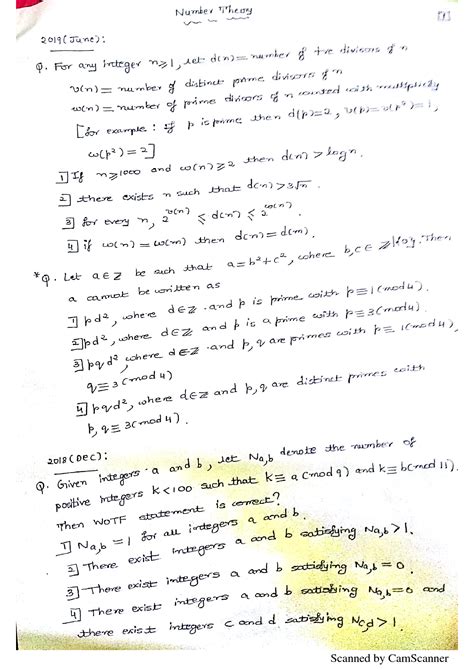 Number Theory
[1]
2019(June):
Q. For any integer n≥1, let d(n)= number of +ve divisors of n
ν(n) = number of distinct prime divisors of n
ω(n) = number of prime divisors of n counted with multiplicity
[for example : if p is prime, then d(p)=2, ν(p)=ν(p²)=1,
ω(p²)=2]
1] If n≥1000 and ω(n)≥2 then d(n)>logn.
2] there exists n such that d(n)>3√n.
3] for every n, 2^ν(n) ≤ d(n) ≤ 2^ω(n).
4] if ω(n)=ω(m) then d(n)=d(m).
*Q. Let a∈Z be such that a=b²+c², where b,c∈Z\{0}. Then
a cannot be written as
1] pd², where d∈Z and p is prime with p≡1(mod4).
2] pd², where d∈Z and p is a prime with p≡3(mod4).
3] pqd², where d∈Z and p,q are primes with p≡1(mod4),
q≡3(mod4)
4] pqd², where d∈Z and p,q are distinct primes with
p,q≡3(mod4).
2018(Dec):
Q. Given integers a and b, let Na,b denote the number of
positive integers k<100 such that k≡a(mod9) and k≡b(mod11).
Then WOTF statement is correct?
1] Na,b = 1 for all integers a and b.
2] There exist integers a and b satisfying Na,b>1.
3] There exist integers a and b satisfying Na,b=0.
4] There exist integers a and b satisfying Na,b=0 and
there exist integers c and d satisfying Nc,d>1.
Scanned by CamScanner